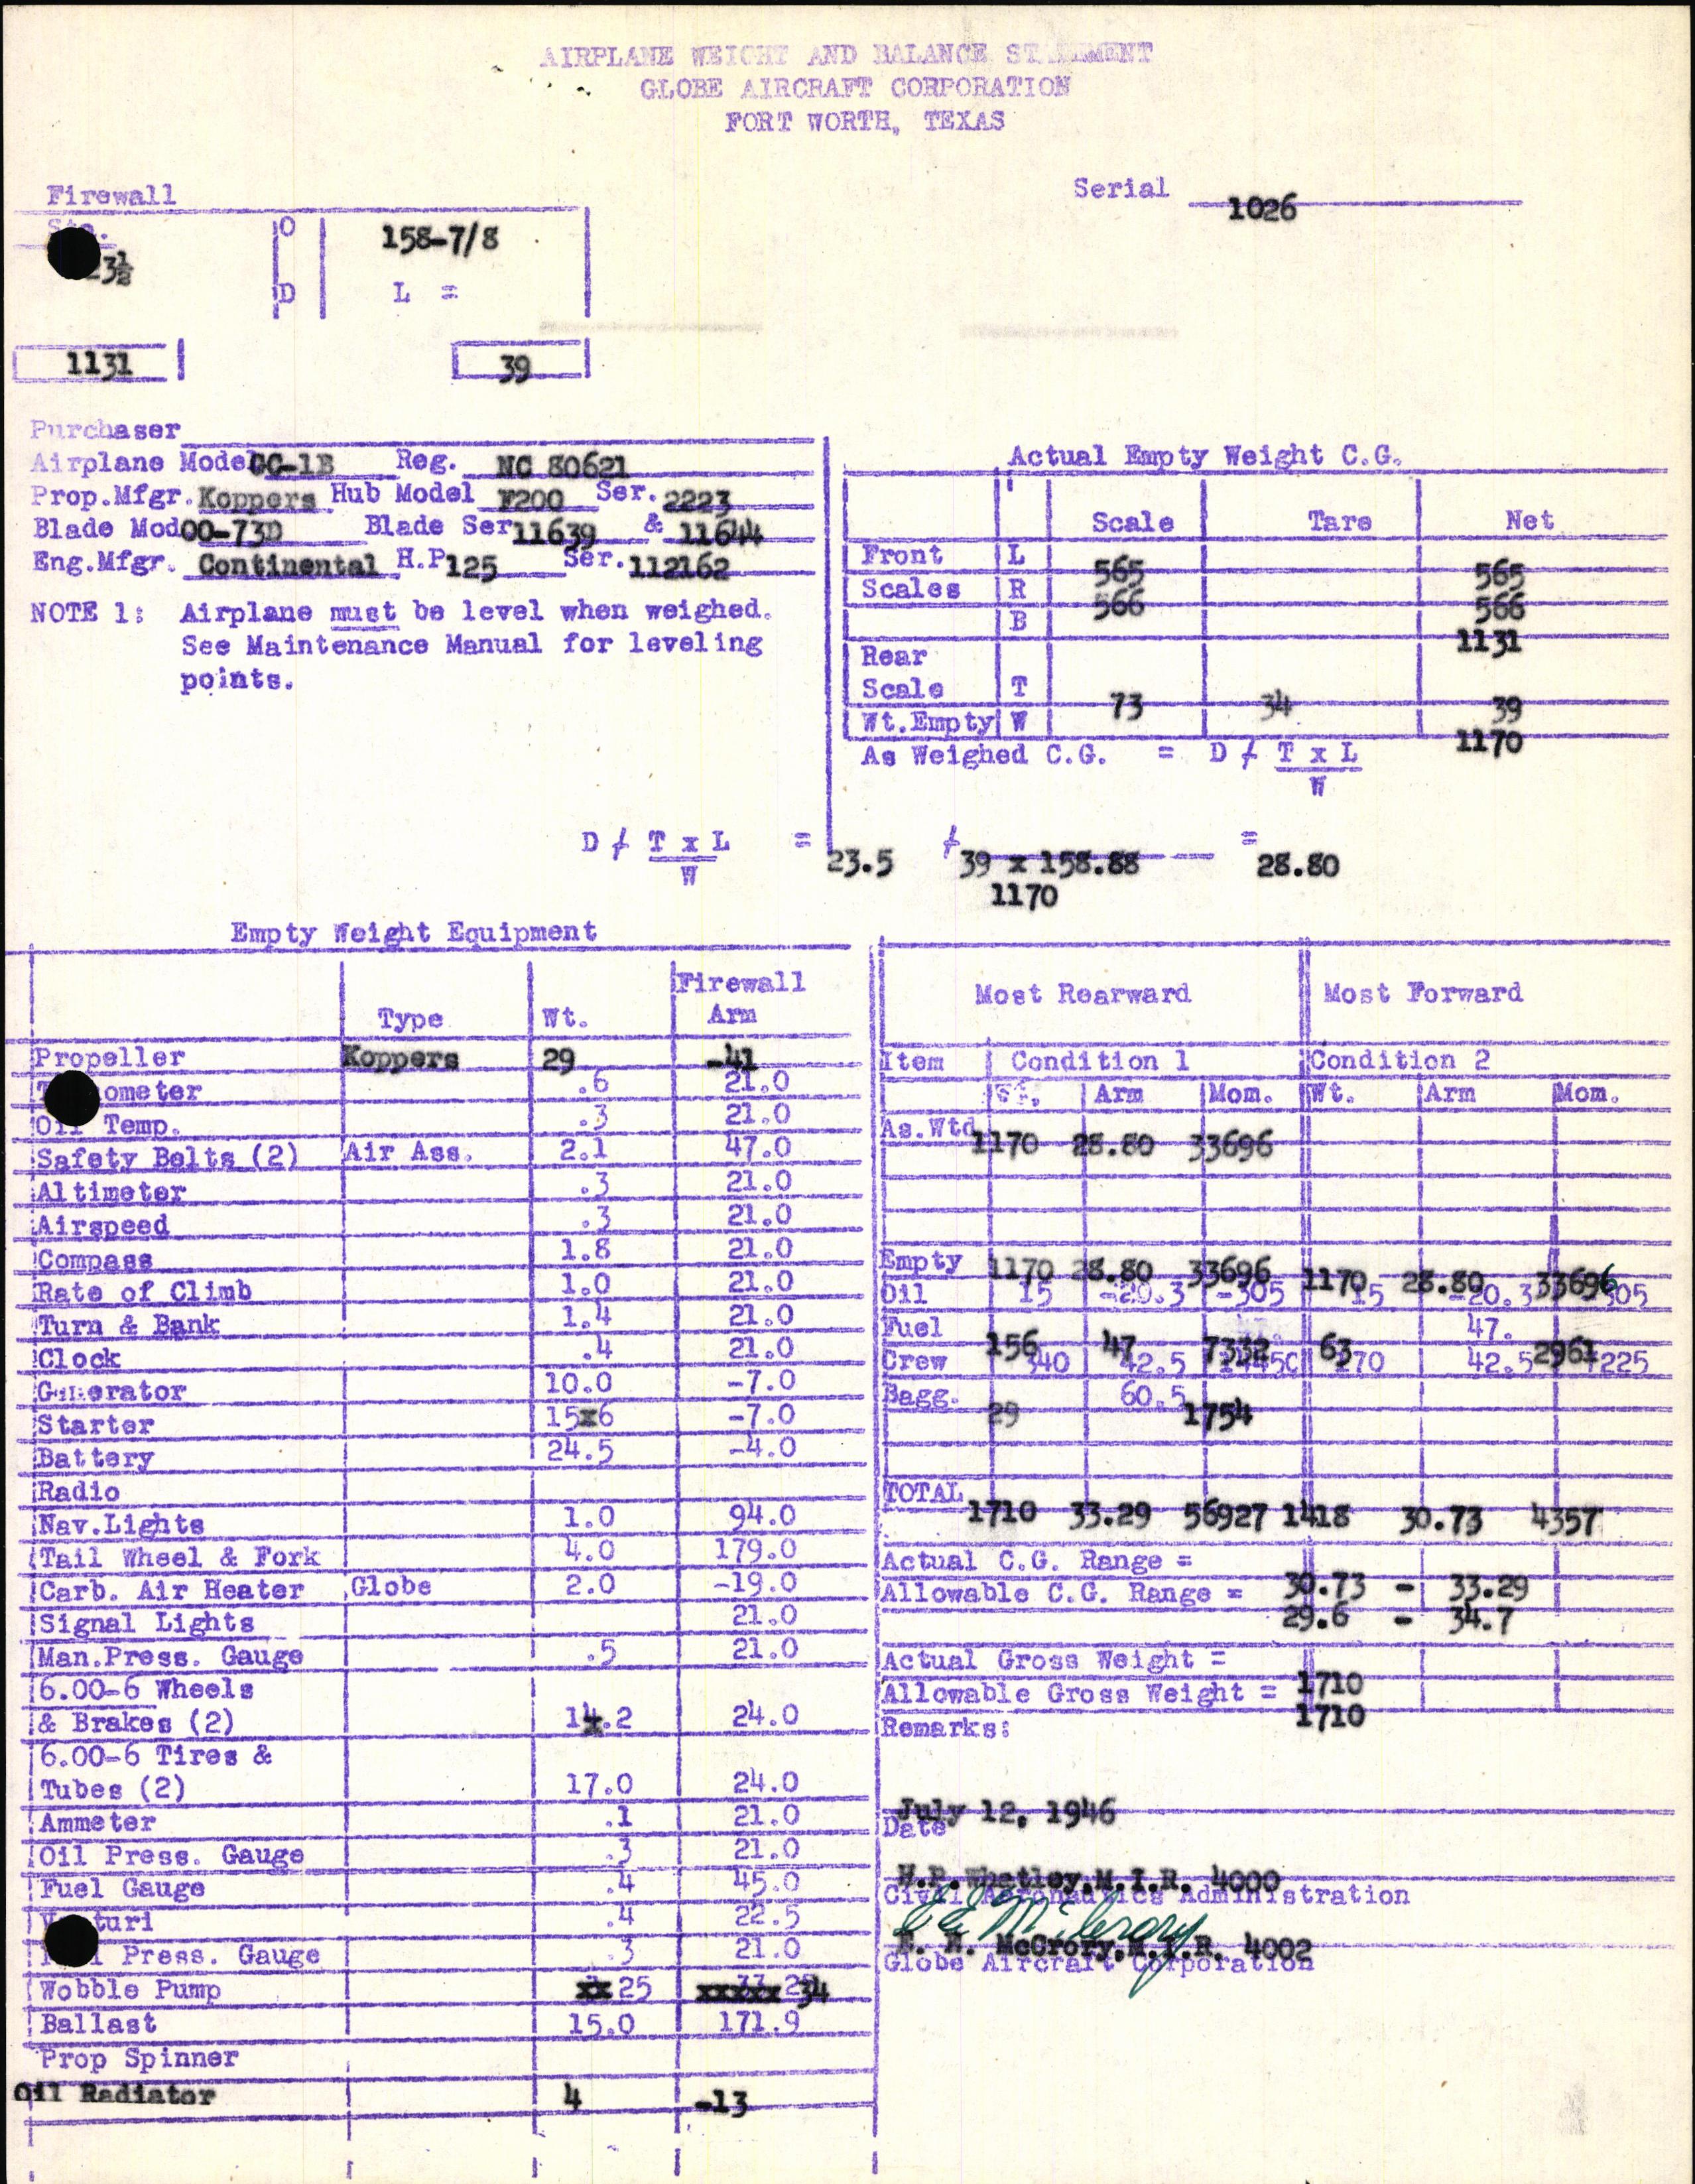 AIRPLANE WEIGHT AND BALANCE STATEMENT
GLOBE AIRCRAFT CORPORATION
FORT WORTH, TEXAS
Serial 1026
Firewall
Sta. O 158-7/8
3½
D L =
1131 39
Purchaser
Airplane Model GC-1B Reg. NC 80621
Prop.Mfgr. Koppers Hub Model F200 Ser. 2223
Blade Mod 00-73D Blade Ser 11639 & 11644
Eng.Mfgr. Continental H.P 125 Ser. 112162
NOTE 1: Airplane must be level when weighed.
See Maintenance Manual for leveling
points.
Actual Empty Weight C.G.
Scale Tare Net
Front L 565 565
Scales R 566 566
B 1131
Rear
Scale T 73 34 39
Wt.Empty W 1170
As Weighed C.G. = D / T x L
W
D / T x L = 23.5 / 39 x 158.88 = 28.80
W 1170
Empty Weight Equipment
Type Wt. Firewall Arm
Propeller Koppers 29 -41
T ometer .6 21.0
Oil Temp. .3 21.0
Safety Belts (2) Air Ass. 2.1 47.0
Altimeter .3 21.0
Airspeed .3 21.0
Compass 1.8 21.0
Rate of Climb 1.0 21.0
Turn & Bank 1.4 21.0
Clock .4 21.0
Generator 10.0 -7.0
Starter 15x6 -7.0
Battery 24.5 -4.0
Radio
Nav.Lights 1.0 94.0
Tail Wheel & Fork 4.0 179.0
Carb. Air Heater Globe 2.0 -19.0
Signal Lights 21.0
Man.Press. Gauge .5 21.0
6.00-6 Wheels
& Brakes (2) 14.2 24.0
6.00-6 Tires &
Tubes (2) 17.0 24.0
Ammeter .1 21.0
Oil Press. Gauge .3 21.0
Fuel Gauge .4 45.0
V turi .4 22.5
l Press. Gauge .3 21.0
Wobble Pump xx 25 xxxxx 34
Ballast 15.0 171.9
Prop Spinner
Oil Radiator 4 -13
Most Rearward Most Forward
Item Condition 1 Condition 2
Wt. Arm Mom. Wt. Arm Mom.
As.Wtd 1170 28.80 33696
Empty 1170 28.80 33696 1170 28.80 33696
Oil 15 -20.3 -305 15 -20.3 -305
Fuel 156 47 7332 63 47. 2961
Crew 340 42.5 14450 170 42.5 7225
Bagg. 29 60.5 1754
TOTAL 1710 33.29 56927 1418 30.73 4357
Actual C.G. Range = 30.73 - 33.29
Allowable C.G. Range = 29.6 - 34.7
Actual Gross Weight = 1710
Allowable Gross Weight = 1710
Remarks:
July 12, 1946
Date
H.P.Whatley.M.I.R. 4000
Civil Aeronautics Administration
McCrory.M.I.R. 4002
Globe Aircraft Corporation